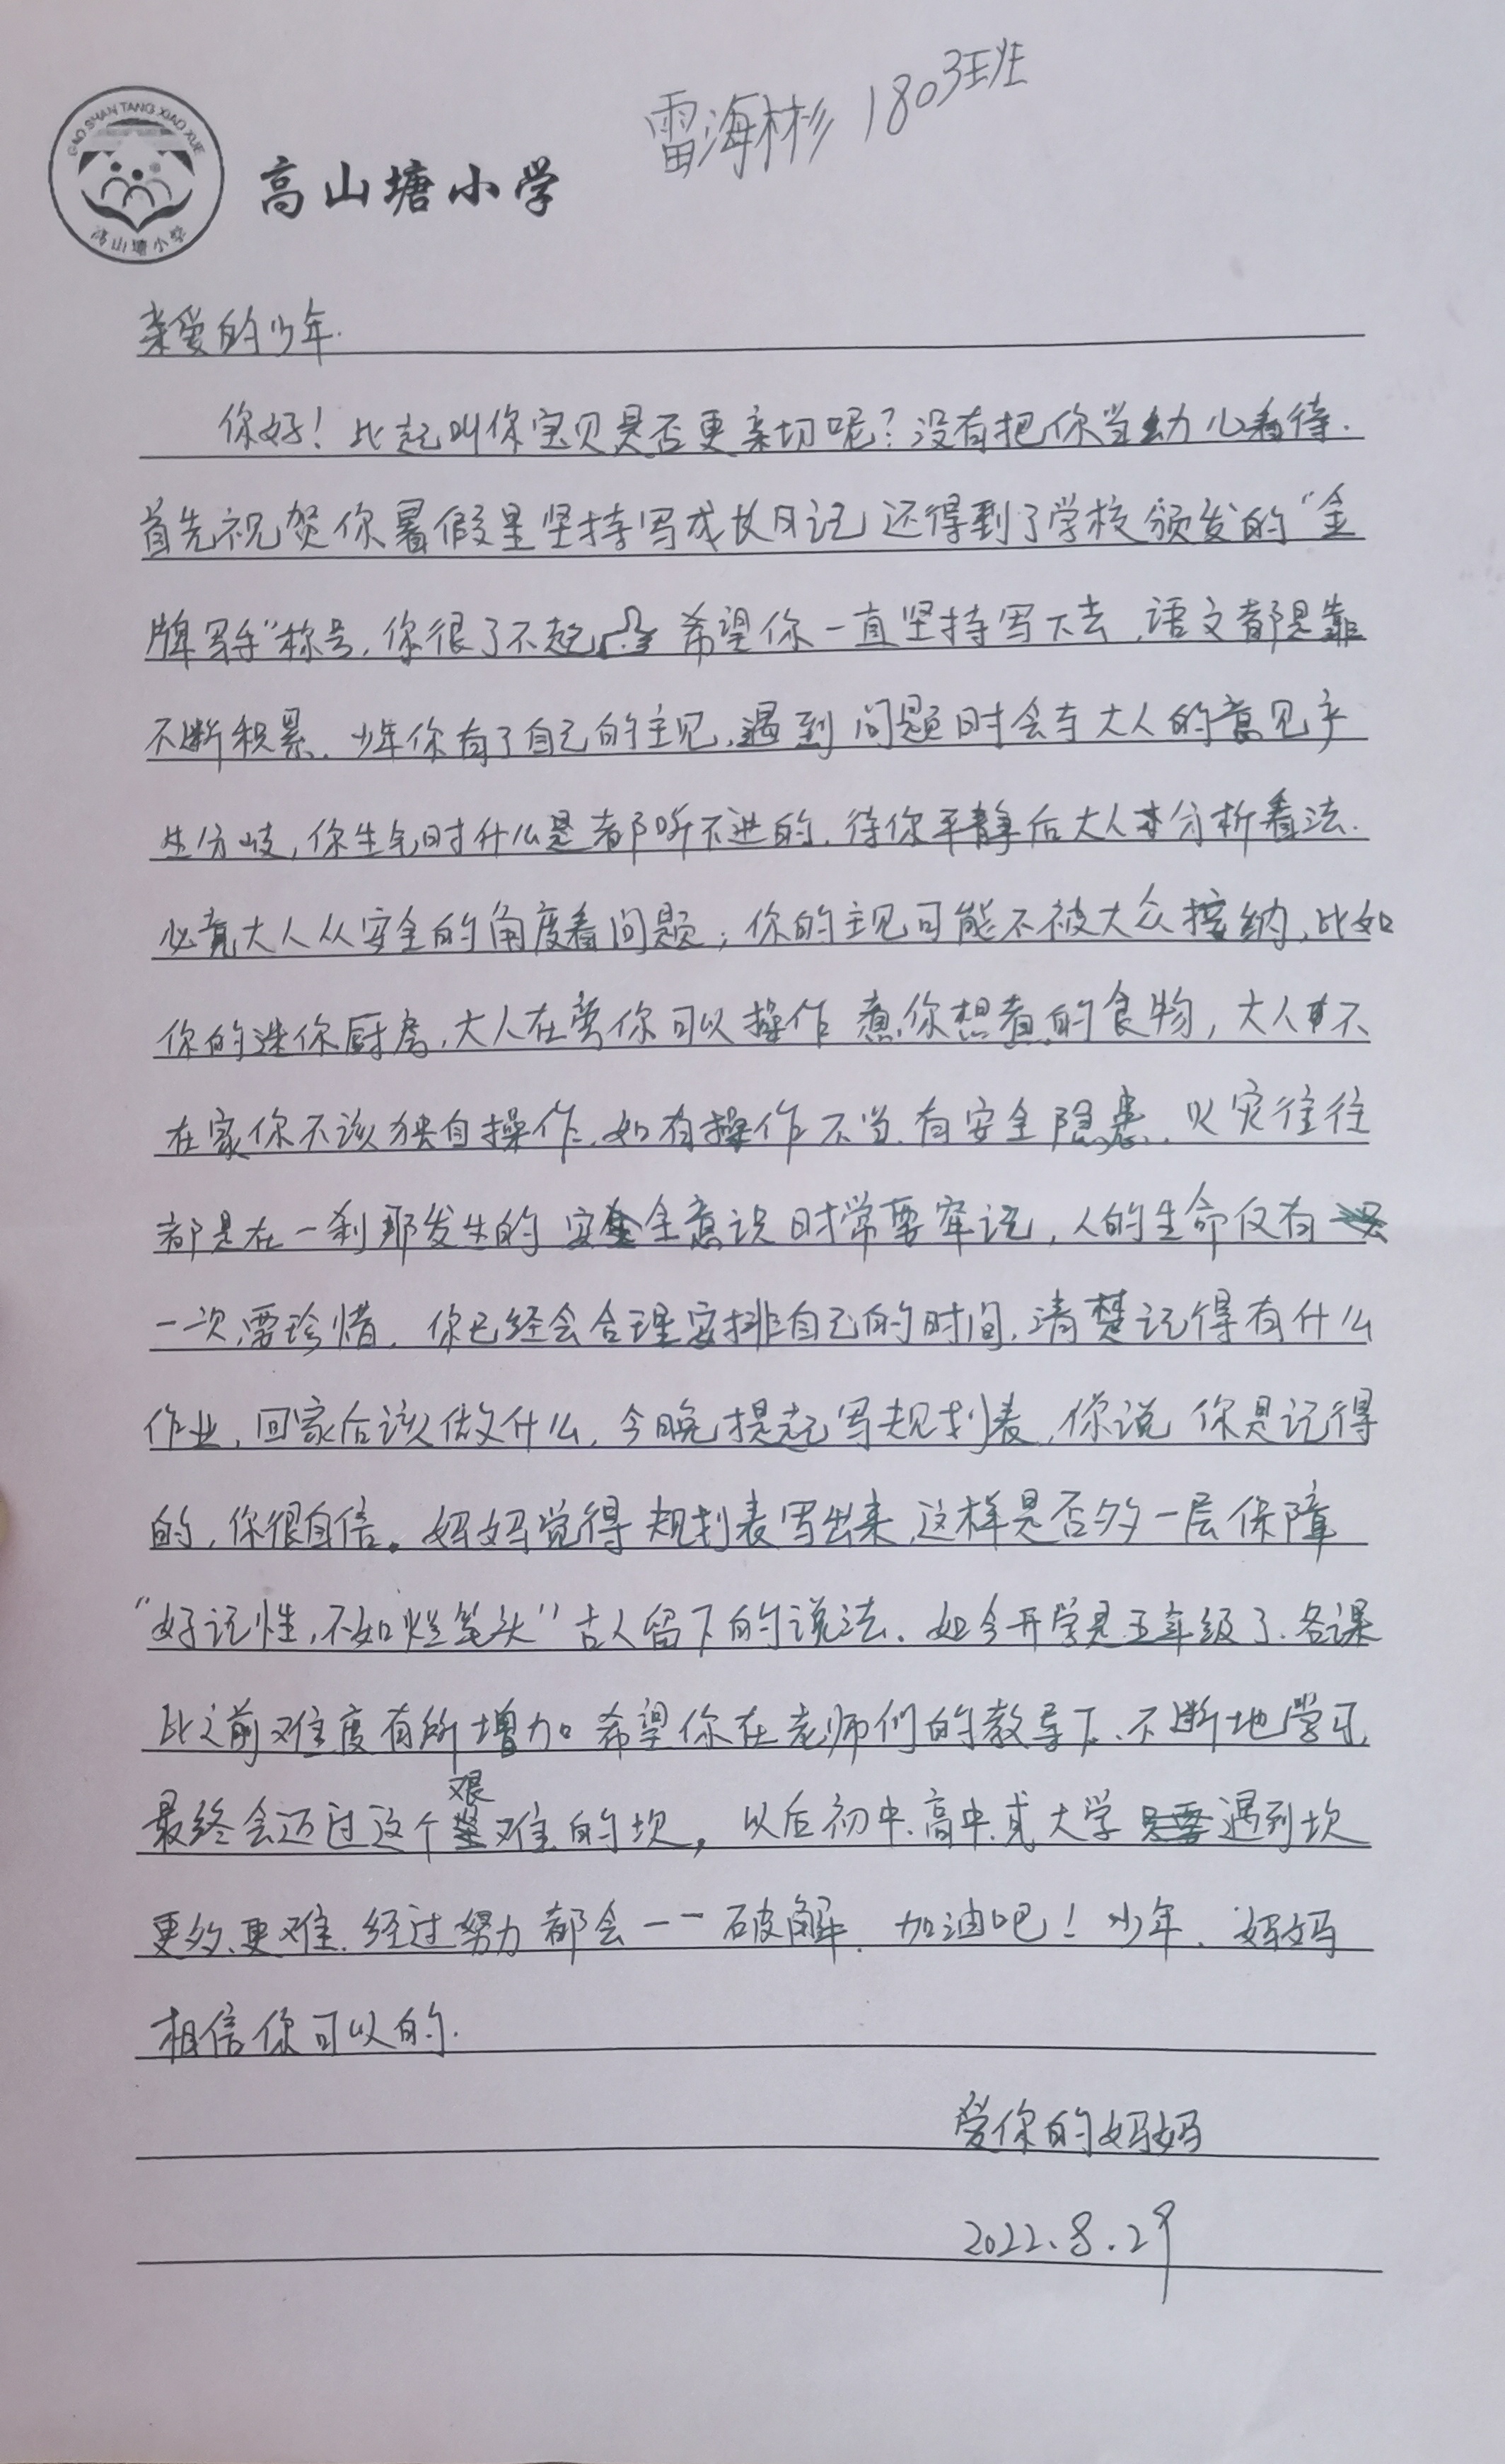 雷海彬 1803班
GAO SHAN TANG XIAO XUE
高山塘小学
高山塘小学
亲爱的少年.
你好！比起叫你宝贝是否更亲切呢？没有把你当幼儿看待.
首先祝贺你暑假里坚持写成长日记 还得到了学校颁发的“金
牌写手”称号,你很了不起 希望你一直坚持写下去,语文都是靠
不断积累. 少年你有了自己的主见,遇到问题时会与大人的意见产
生分岐,你生气时什么是都听不进的,待你平静后大人才分析看法.
必竟大人从安全的角度看问题；你的主见可能不被大众接纳,比如
你的迷你厨房,大人在旁你可以操作煮你想煮的食物,大人不
在家你不该独自操作,如有操作不当,有安全隐患,火灾往往
都是在一刹那发生的 安全意识时常要牢记,人的生命仅有
一次,要珍惜. 你已经会合理安排自己的时间,清楚记得有什么
作业,回家后该做什么,今晚提起写规划表,你说 你是记得
的,你很自信。妈妈觉得规划表写出来,这样是否多一层保障
“好记性,不如烂笔头”古人留下的说法. 如今开学是五年级了.各课
比之前难度有所增加 希望你在老师们的教导下、不断地学习,
最终会迈过这个艰难的坎。以后初中、高中、或大学遇到坎
更多、更难.经过努力都会一一破解. 加油吧！少年、妈妈
相信你可以的.
爱你的妈妈
2022.8.29